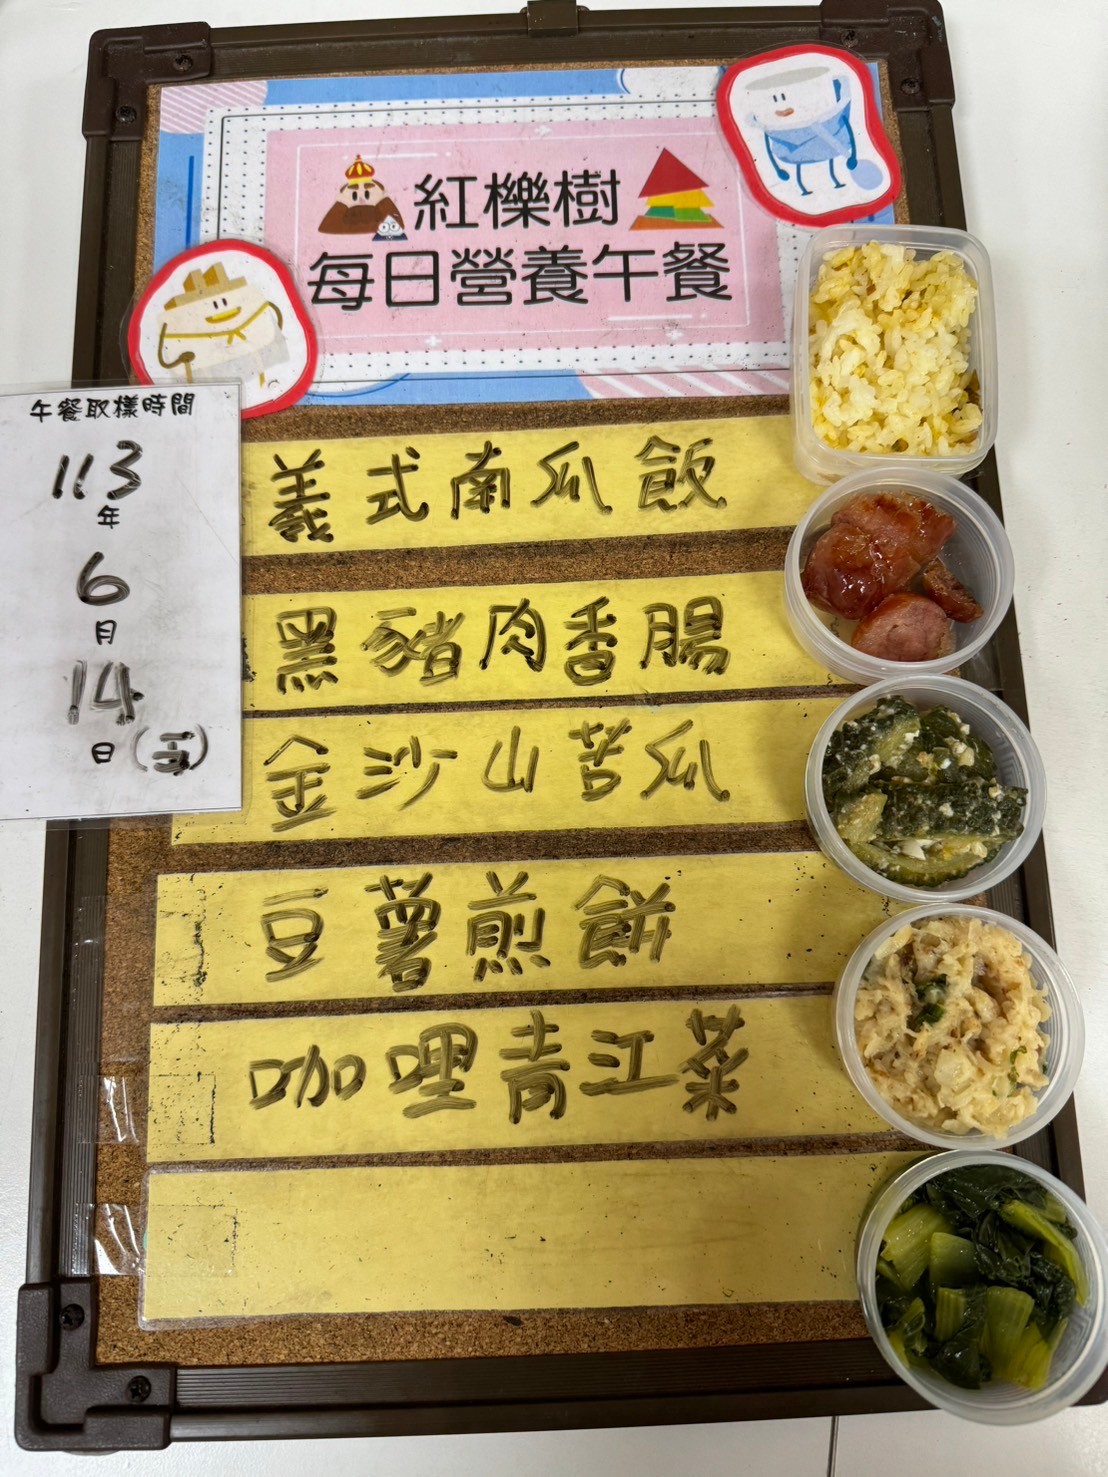 紅櫟樹
每日營養午餐
午餐取樣時間
113
年
6
月
14
日(五)
義式南瓜飯
黑豬肉香腸
金沙山苦瓜
豆薯煎餅
咖哩青江菜